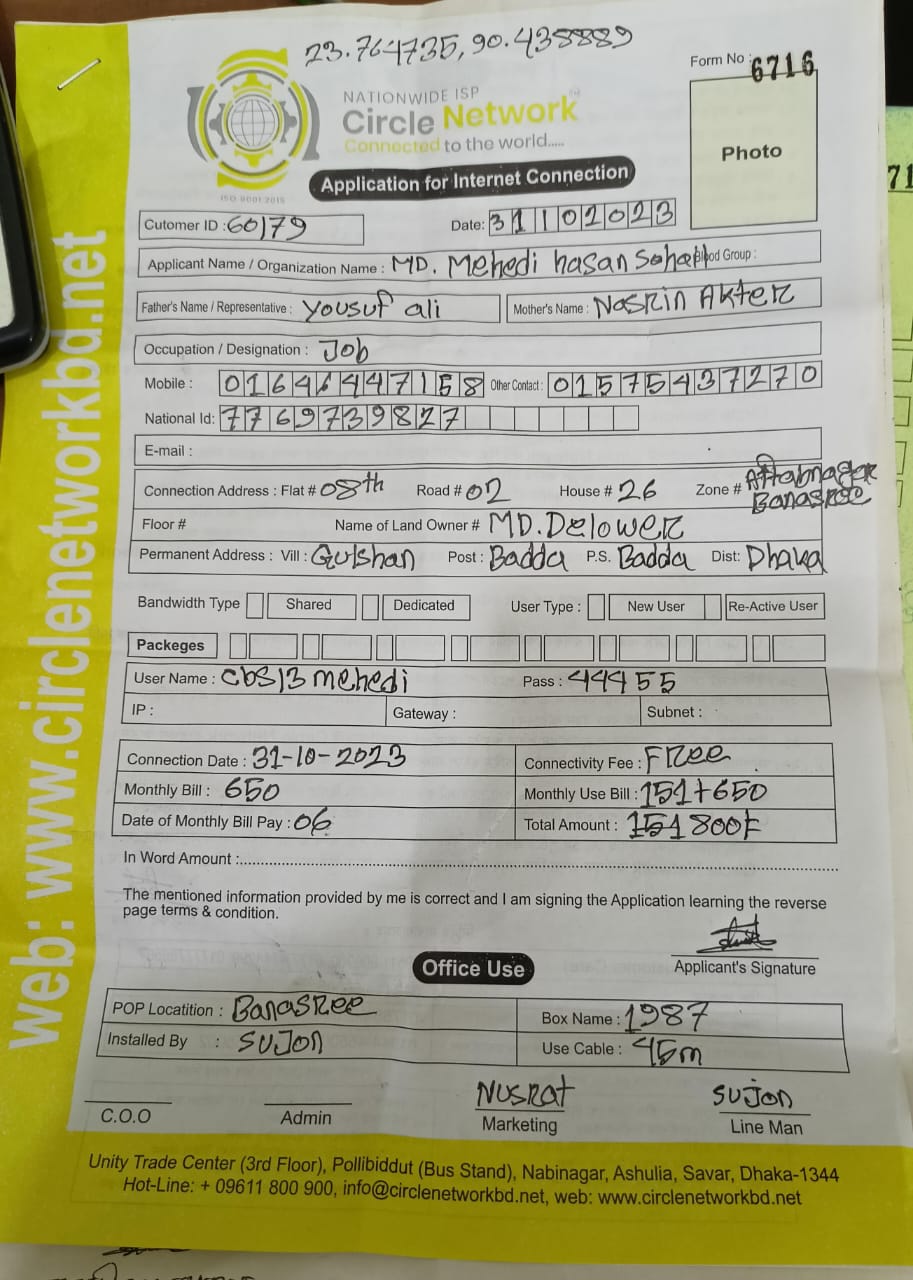 23.764735, 90.438889
Form No : 6716
NATIONWIDE ISP
Circle Network
Connected to the world.....
ISO 9001:2015
Photo
Application for Internet Connection
Cutomer ID : 60179 Date: 31102023
Applicant Name / Organization Name : MD. Mehedi hasan Blood Group :
Father's Name / Representative : Yousuf ali Mother's Name : Nasrin Akter
Occupation / Designation : Job
Mobile : Other Contact : 01575437270
National Id: 7769739827
E-mail :
Connection Address : Flat # 08th Road # 02 House # 26 Zone # Aftabnagar
Banasree
Floor # Name of Land Owner # MD. Delower
Permanent Address : Vill : Gulshan Post : Badda P.S. Badda Dist: Dhaka
Bandwidth Type Shared Dedicated User Type : New User Re-Active User
Packeges
User Name : cbs13mehedi Pass : 44455
IP : Gateway : Subnet :
Connection Date : 31-10-2023 Connectivity Fee : Free
Monthly Bill : 650 Monthly Use Bill : 151+650
Date of Monthly Bill Pay : 06 Total Amount : 151 800/=
In Word Amount :
The mentioned information provided by me is correct and I am signing the Application learning the reverse
page terms & condition.
Applicant's Signature
Office Use
POP Locatition : Banasree Box Name : 1987
Installed By : Sujon Use Cable : 45m
Nusrat Sujon
C.O.O Admin Marketing Line Man
Unity Trade Center (3rd Floor), Pollibiddut (Bus Stand), Nabinagar, Ashulia, Savar, Dhaka-1344
Hot-Line: + 09611 800 900, info@circlenetworkbd.net, web: www.circlenetworkbd.net
web: www.circlenetworkbd.net
71